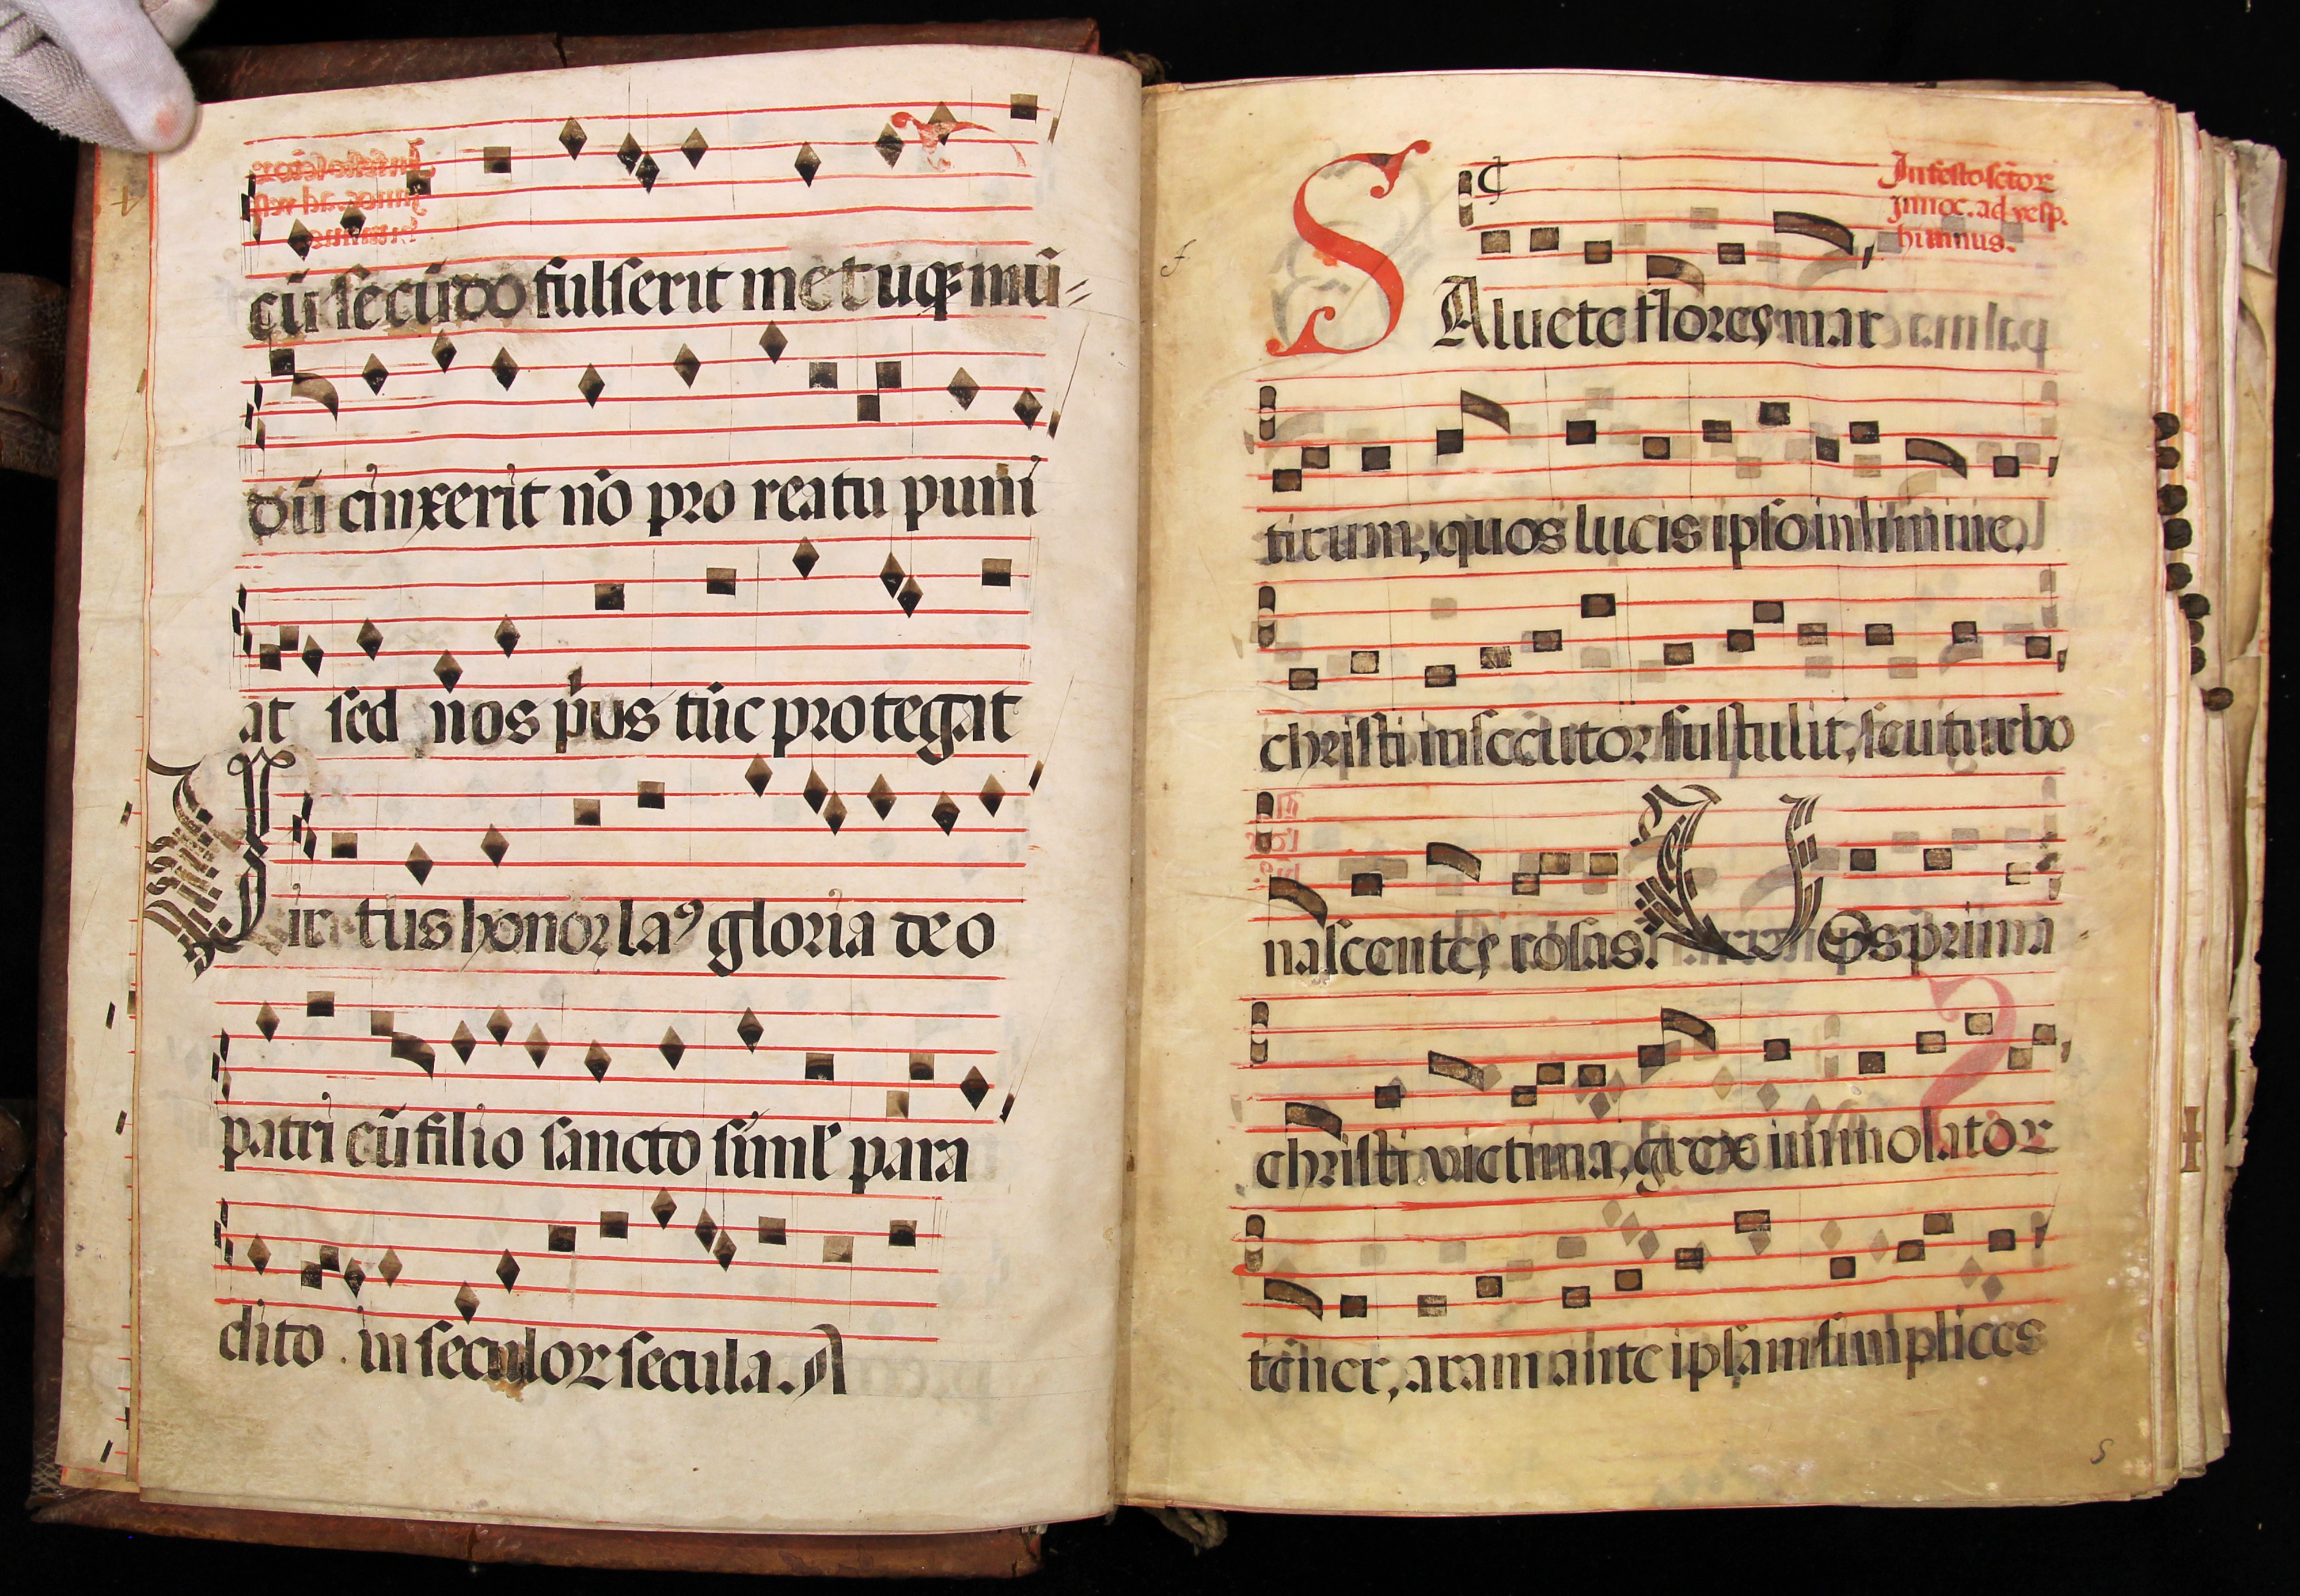 cū secūdo fulserit metuqꝫ mū=
dū cinxerit nō pro reatu puni
at sed nos pus tūc protegat
Virtus honor laꝰ gloria deo
patri cū filio sancto siml para
dito in seculoꝝ secula. A
In festo sctor
innoc. ad vesp.
himnus.
SAluete flores mar
tirum, quos lucis ipso in limine,
christi insecutor sustulit, seu turbo
nascentes rosas. Vos prima
christi victima, grex immolator
tener, aram ante ipsam simplices
5